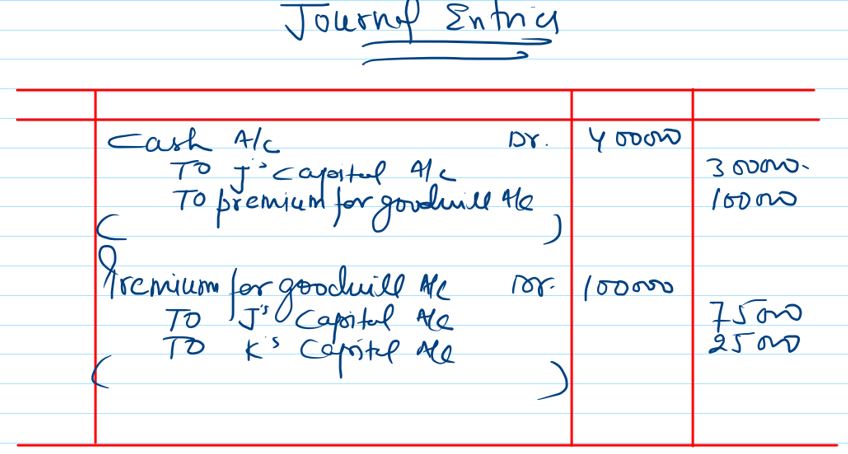 Journal Entries
Cash A/c Dr. 400000
To J's Capital A/c 300000.
To premium for goodwill A/c 100000
( )
Premium for goodwill A/c Dr. 100000
To J's Capital A/c 75000
To K's Capital A/c 25000
( )